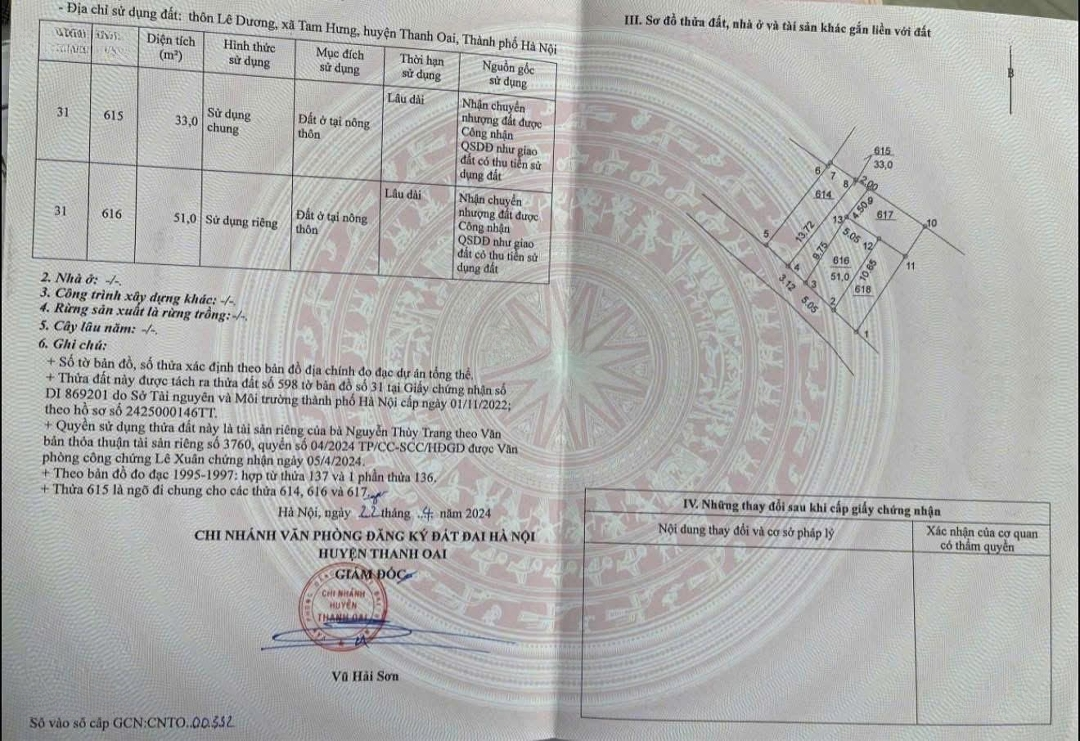 - Địa chỉ sử dụng đất: thôn Lê Dương, xã Tam Hưng, huyện Thanh Oai, Thành phố Hà Nội
Diện tích (m²) Hình thức sử dụng Mục đích sử dụng Thời hạn sử dụng Nguồn gốc sử dụng
31 615 33,0 Sử dụng chung Đất ở tại nông thôn Lâu dài Nhận chuyển nhượng đất được Công nhận QSDĐ như giao đất có thu tiền sử dụng đất
31 616 51,0 Sử dụng riêng Đất ở tại nông thôn Lâu dài Nhận chuyển nhượng đất được Công nhận QSDĐ như giao đất có thu tiền sử dụng đất
2. Nhà ở: -/-.
3. Công trình xây dựng khác: -/-.
4. Rừng sản xuất là rừng trồng:-/-.
5. Cây lâu năm: -/-.
6. Ghi chú:
+ Số tờ bản đồ, số thửa xác định theo bản đồ địa chính đo đạc dự án tổng thể.
+ Thửa đất này được tách ra thửa đất số 598 tờ bản đồ số 31 tại Giấy chứng nhận số
DI 869201 do Sở Tài nguyên và Môi trường thành phố Hà Nội cấp ngày 01/11/2022;
theo hồ sơ số 2425000146TT.
+ Quyền sử dụng thửa đất này là tài sản riêng của bà Nguyễn Thùy Trang theo Văn
bản thỏa thuận tài sản riêng số 3760, quyển số 04/2024 TP/CC-SCC/HĐGD được Văn
phòng công chứng Lê Xuân chứng nhận ngày 05/4/2024.
+ Theo bản đồ đo đạc 1995-1997: hợp từ thửa 137 và 1 phần thửa 136.
+ Thửa 615 là ngõ đi chung cho các thửa 614, 616 và 617
Hà Nội, ngày 22 tháng 4 năm 2024
CHI NHÁNH VĂN PHÒNG ĐĂNG KÝ ĐẤT ĐAI HÀ NỘI
HUYỆN THANH OAI
GIÁM ĐỐC
CHI NHÁNH
HUYỆN
THANH OAI
Vũ Hải Sơn
Số vào sổ cấp GCN:CNTO..00.332
III. Sơ đồ thửa đất, nhà ở và tài sản khác gắn liền với đất
B
615
33,0
6
7
8
2.00
614
4.50
9
617
10
13
13.72
5.05
12
5
9.75
616
51,0
10.65
11
4
3
618
3.12
5.05
2
1
IV. Những thay đổi sau khi cấp giấy chứng nhận
Nội dung thay đổi và cơ sở pháp lý
Xác nhận của cơ quan
có thẩm quyền